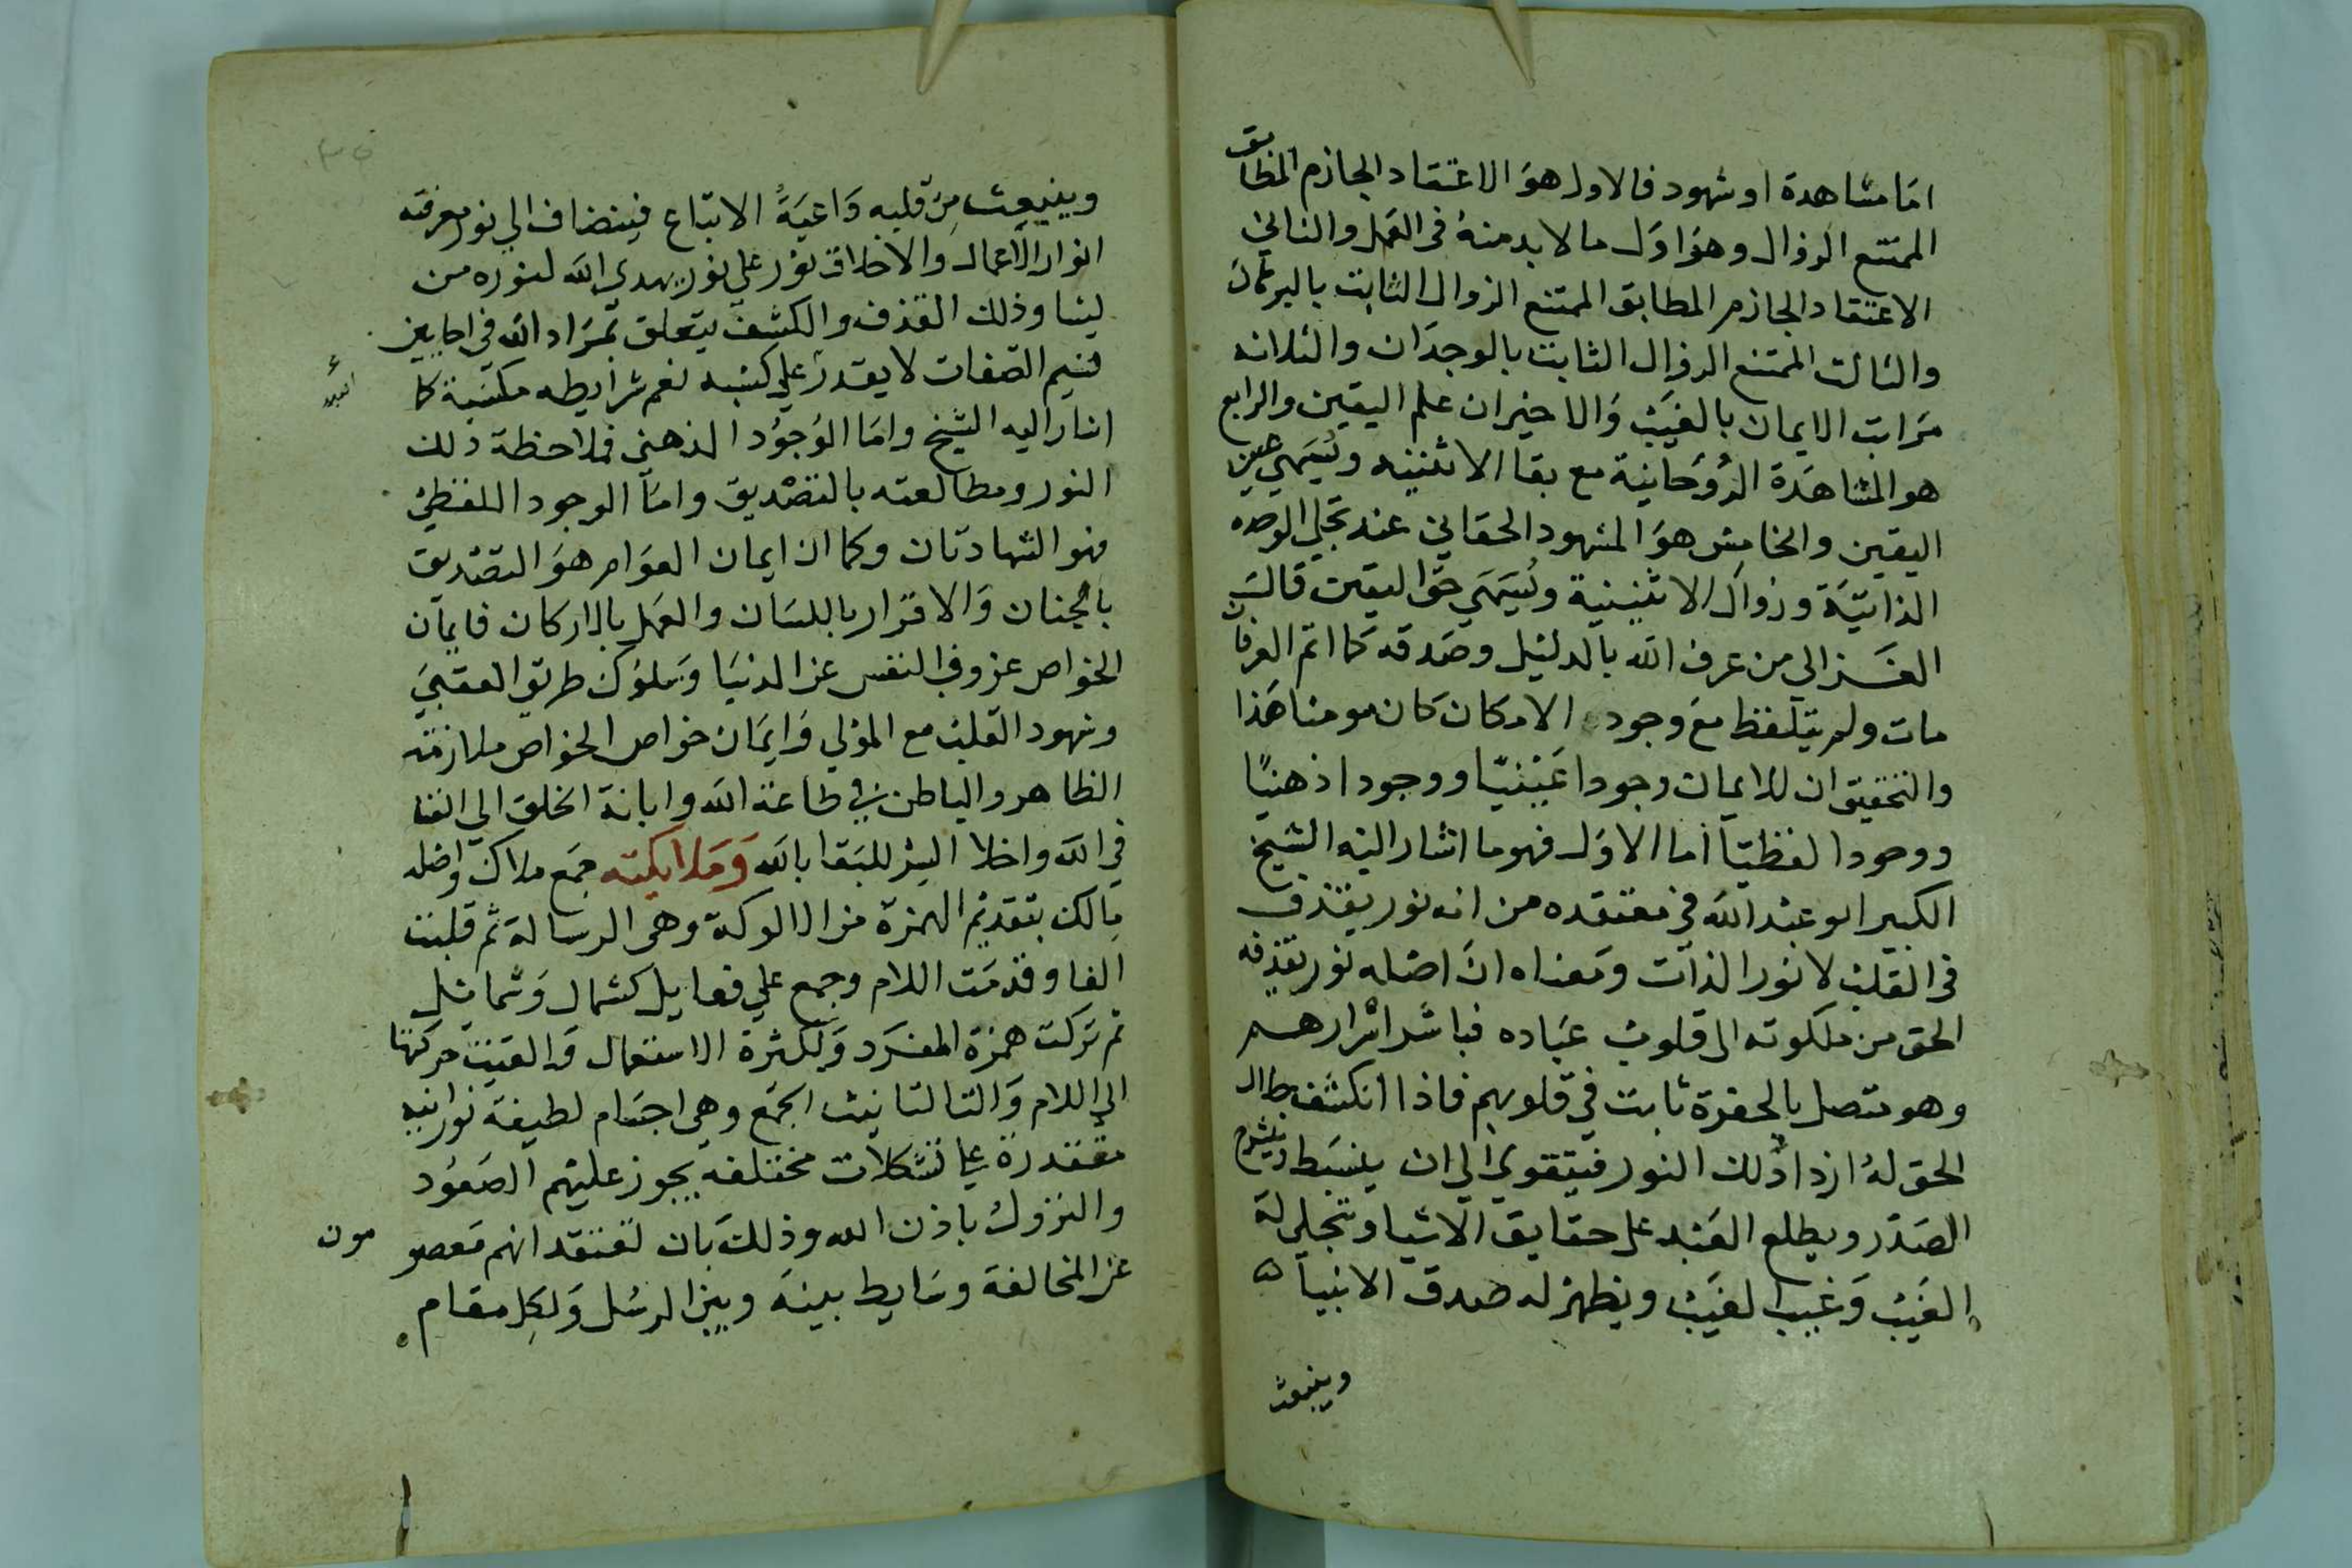 اما مشاهدة او شهود فالاول هو الاعتقاد الجازم المطابق
الممتنع الزوال وهو اول ما لا بد منه فى العمل والثاني
الاعتقاد الجازم المطابق الممتنع الزوال الثابت بالبرهان
والثالث الممتنع الزوال الثابت بالوجدان والثلاثه
مراتب الايمان بالغيب والاخيران علم اليقين والرابع
هو المشاهدة الروحانية مع بقا الاثنينيه ويسمي عين
اليقين والخامس هو المشهود الحقاني عند تجلي الوحده
الذاتية وزوال الاثنينية ويسمي حق اليقين قالـــ
الغــزالي من عرف الله بالدليل وصدقه كما اتم العرفان
مات ولم يتلفظ مع وجود الامكان كان مومنا هذا
والتحقيق ان للايمان وجودا عينيا ووجودا ذهنيا
ووجودا لفظيا اما الاول فهو ما اشار اليه الشيخ
الكبير ابو عبد الله في معتقده من انه نور يقذف
فى القلب لا نور الذات ومعناه ان اصله نور يقذفه
الحق من ملكوته الى قلوب عباده فباشر اسرارهــم
وهو متصل بالحضرة ثابت في قلوبهم فاذا انكشف جمال
الحق له ازداد ذلك النور فيتقوي الي ان ينبسط وينشرح
الصدر ويطلع العبد على حقايق الاشيا وتتجلي له
الغيب وغيب الغيب ويظهر له صدق الانبيا
وينبعث
وينبعث من قلبه داعية الاتباع فينضاف الي نور معرفته
انوار الاعمال والاخلاق نور علي نور يهدي الله لنوره من
يشا وذلك القذف والكشف يتعلق بمراد الله في احايين
فنيم الصفات لا يقدر علي كسبه نعم شرايطه مكتسبة كما
اشار اليه الشيخ واما الوجود الذهني فملاحظة ذلك
النور ومطالعته بالتصديق واما الوجود اللفظي
فهو الشهادتان وكما ان ايمان العوام هو التصديق
بالجنان والاقرار باللسان والعمل بالاركان فايمان
الخواص عزوف النفس عن الدنيا وسلوك طريق العقبي
وشهود القلب مع المولي وايمان خواص الخواص ملازمة
الظاهر والباطن في طاعة الله وانابة الخلق الى الفنا
في الله واخلا السر للبقا بالله وملايكته جمع ملاك واصله
مالك بتقديم الهمزة من الالوكة وهى الرسالة ثم قلبت
الفا وقدمت اللام وجمع علي فعايل كشمال وشمايل
ثم تركت همزة المفرد ولكثرة الاستعمال والقيت حركتها
الي اللام والتا لتانيث الجمع وهي اجسام لطيفة نورانيه
مقتدرة علي تشكلات مختلفه يجوز عليهم الصعود
والنزول باذن الله وذلك بان تعتقد انهم معصو مون
عن المخالفة وسايط بينه وبين الرسل ولكل مقام